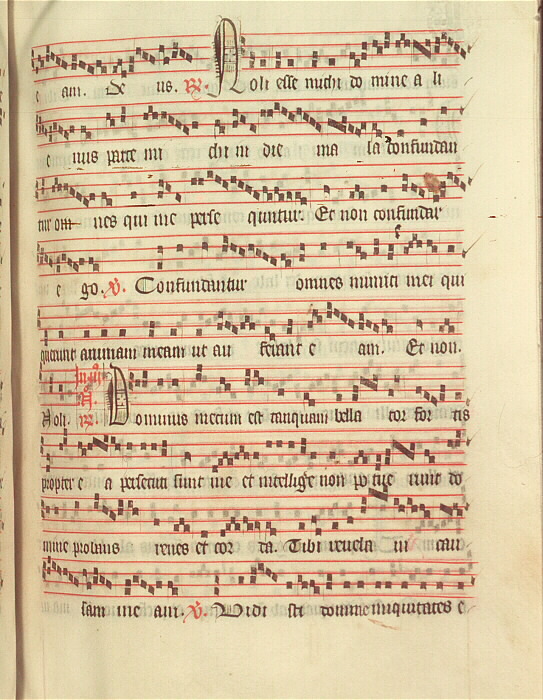 e am. De us. R. Noli esse michi do mine a li
e nus parce mi chi in die ma la confundan
tur om nes qui me perse quntur. Et non confundar
e go. V. Confundantur omnes inimici mei qui
querunt animam meam ut au ferant e am. Et non.
Noli. R. Dominus mecum est tanquam bella tor for tis
propter e a persecuti sunt me et intellige non po tue runt do
mine probans renes et cor da. Tibi revela ui cau
sam me am. V. Vidi sti domine iniquitates e